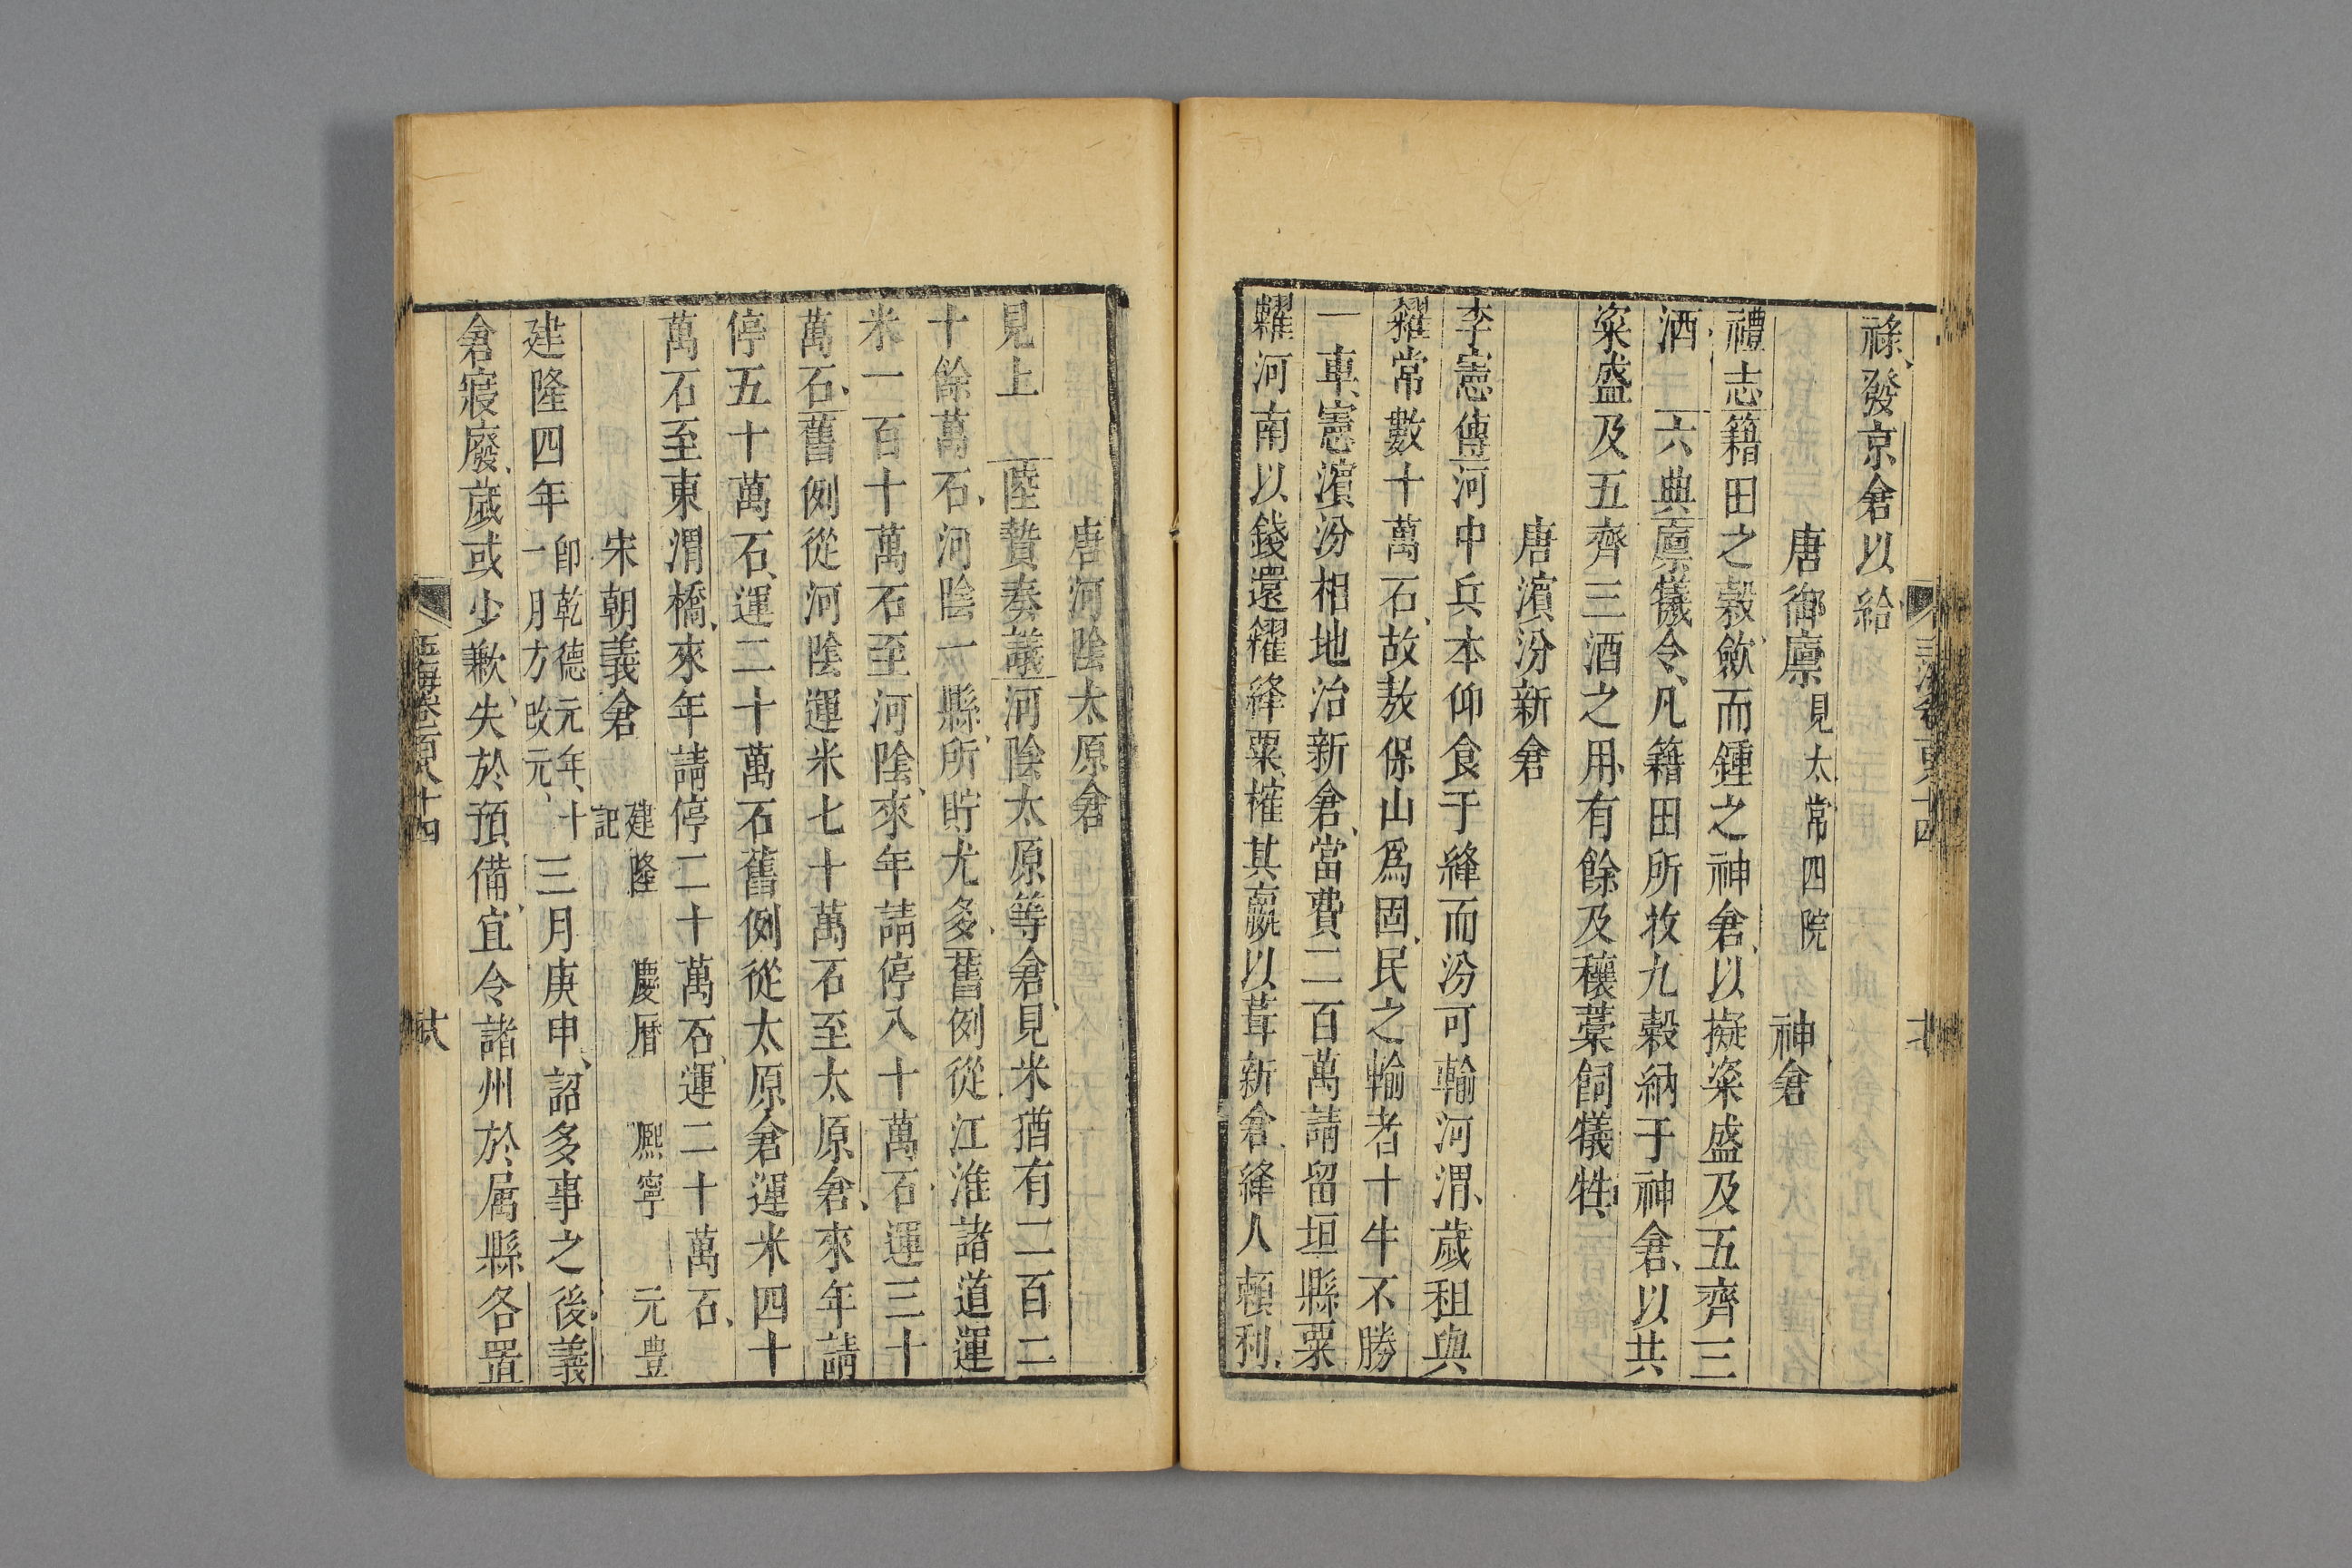 祿發京倉以給
唐御廪見太常四院 神倉
禮志籍田之穀歛而鍾之神倉以擬粢盛及五齊三
酒 六典廪犧令凡籍田所收九穀納于神倉以共
粢盛及五齊三酒之用有餘及穰藁飼犧牲
唐濱汾新倉
李憲傳河中兵本仰食于絳而汾可輸河渭歲租與
糴常數十萬石故敖保山爲固民之輸者十牛不勝
一車憲濱汾相地治新倉當費二百萬請留垣縣粟
糶河南以錢還糴絳粟榷其贏以葺新倉絳人頼利
唐河陰太原倉
見上 陸贄奏議河陰太原等倉見米猶有二百二
十餘萬石河陰一縣所貯尤多舊例從江淮諸道運
米一百十萬石至河陰來年請停八十萬石運三十
萬石舊例從河陰運米七十萬石至太原倉來年請
停五十萬石運二十萬石舊例從太原倉運米四十
萬石至東渭橋來年請停二十萬石運二十萬石
宋朝義倉 建隆 慶曆 熙寧 元豊
記
建隆四年即乾德元年十
一月方改元
三月庚申詔多事之後義
倉寢廢歲或少歉失於預備宜令諸州於属縣各置
玉海卷一百八十四